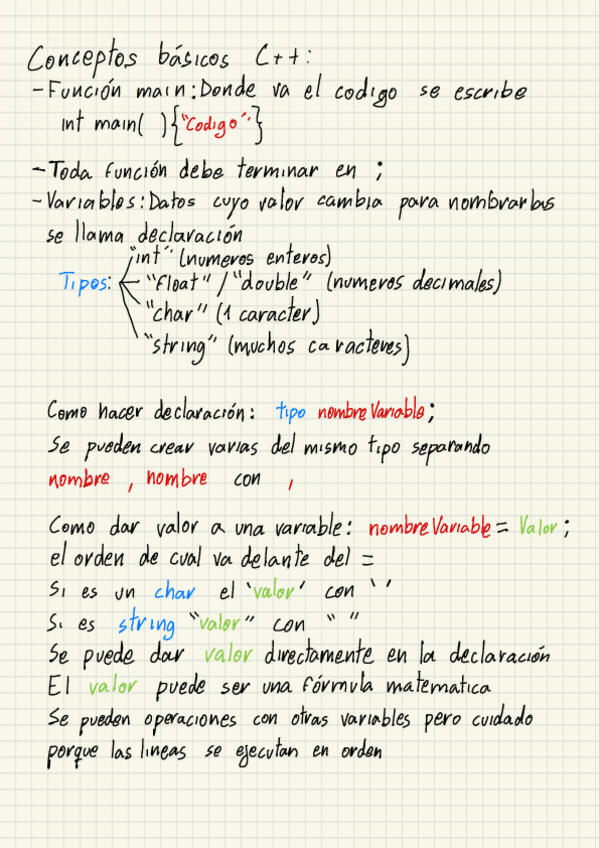 Conceptos básicos C++:
-Función main: Donde va el codigo se escribe
int main( ){"Codigo"}
-Toda función debe terminar en ;
-Variables: Datos cuyo valor cambia para nombrarlas
se llama declaración
Tipos:
"int" (numeros enteros)
"float" / "double" (numeros decimales)
"char" (1 caracter)
"string" (muchos caracteres)
Como hacer declaración: tipo nombreVariable;
Se pueden crear varias del mismo tipo separando
nombre , nombre con ,
Como dar valor a una variable: nombreVariable = Valor;
el orden de cual va delante del =
Si es un char el 'valor' con ' '
Si es string "valor" con " "
Se puede dar valor directamente en la declaración
El valor puede ser una fórmula matematica
Se pueden operaciones con otras variables pero cuidado
porque las lineas se ejecutan en orden